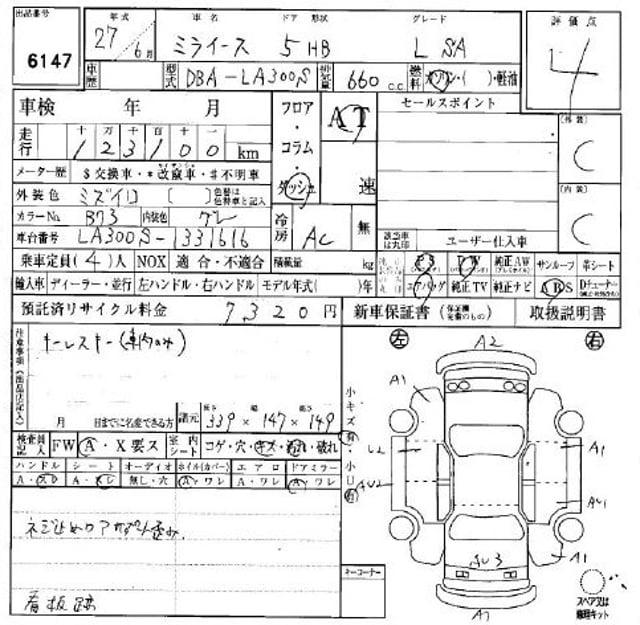 出品番号 年式 車名 ドア 形状 グレード 評価点
6147 27年 6月 ミライース 5 HB L SA 4
車歴 型式 DBA-LA300S 排気量 660 c.c. 燃料 ガソリン・( )・軽油
車検 年 月 フロア・コラム・ダッシュ AT 速 セールスポイント
走行 十 万 千 百 十 一
123100 km
(外装) C
メーター歴 $交換車・*改ざん車・#不明車
外装色 ミズイロ [ ] 色替は色替車と記入
(内装) C
カラーNo. B73 内装色 グレ 冷房 AC 無
車台番号 LA300S-1331616 該当車は丸印 ユーザー仕入車
乗車定員(4)人 NOX 適合・不適合 積載量 kg PS PW 純正AW サンルーフ 革シート
輸入車 ディーラー・並行 左ハンドル・右ハンドル モデル年式( )年 エアバッグ 純正TV 純正ナビ ABS Dチューナー
預託済リサイクル料金 7320円 新車保証書 取扱説明書
注意事項(出品店記入) キーレスキー(車内のみ)
左 A2 右
月 日までに名変できる方 諸元 長さ 339 × 幅 147 × 高さ 149
小キズ有・小凹有
検査員記入 FW A・X要ス 室内シート コゲ・穴・キズ・汚れ・破れ
ハンドル シート オーディオ ホイル(カバー) エアロ ドアミラー
A・スレ A・スレ 無し・穴 A・ワレ A・ワレ A・ワレ
A1
A1
AU2
AU1
ネジ止め
A1
AU3
看板跡
キーコーナー
A1
スペア又は修理キット